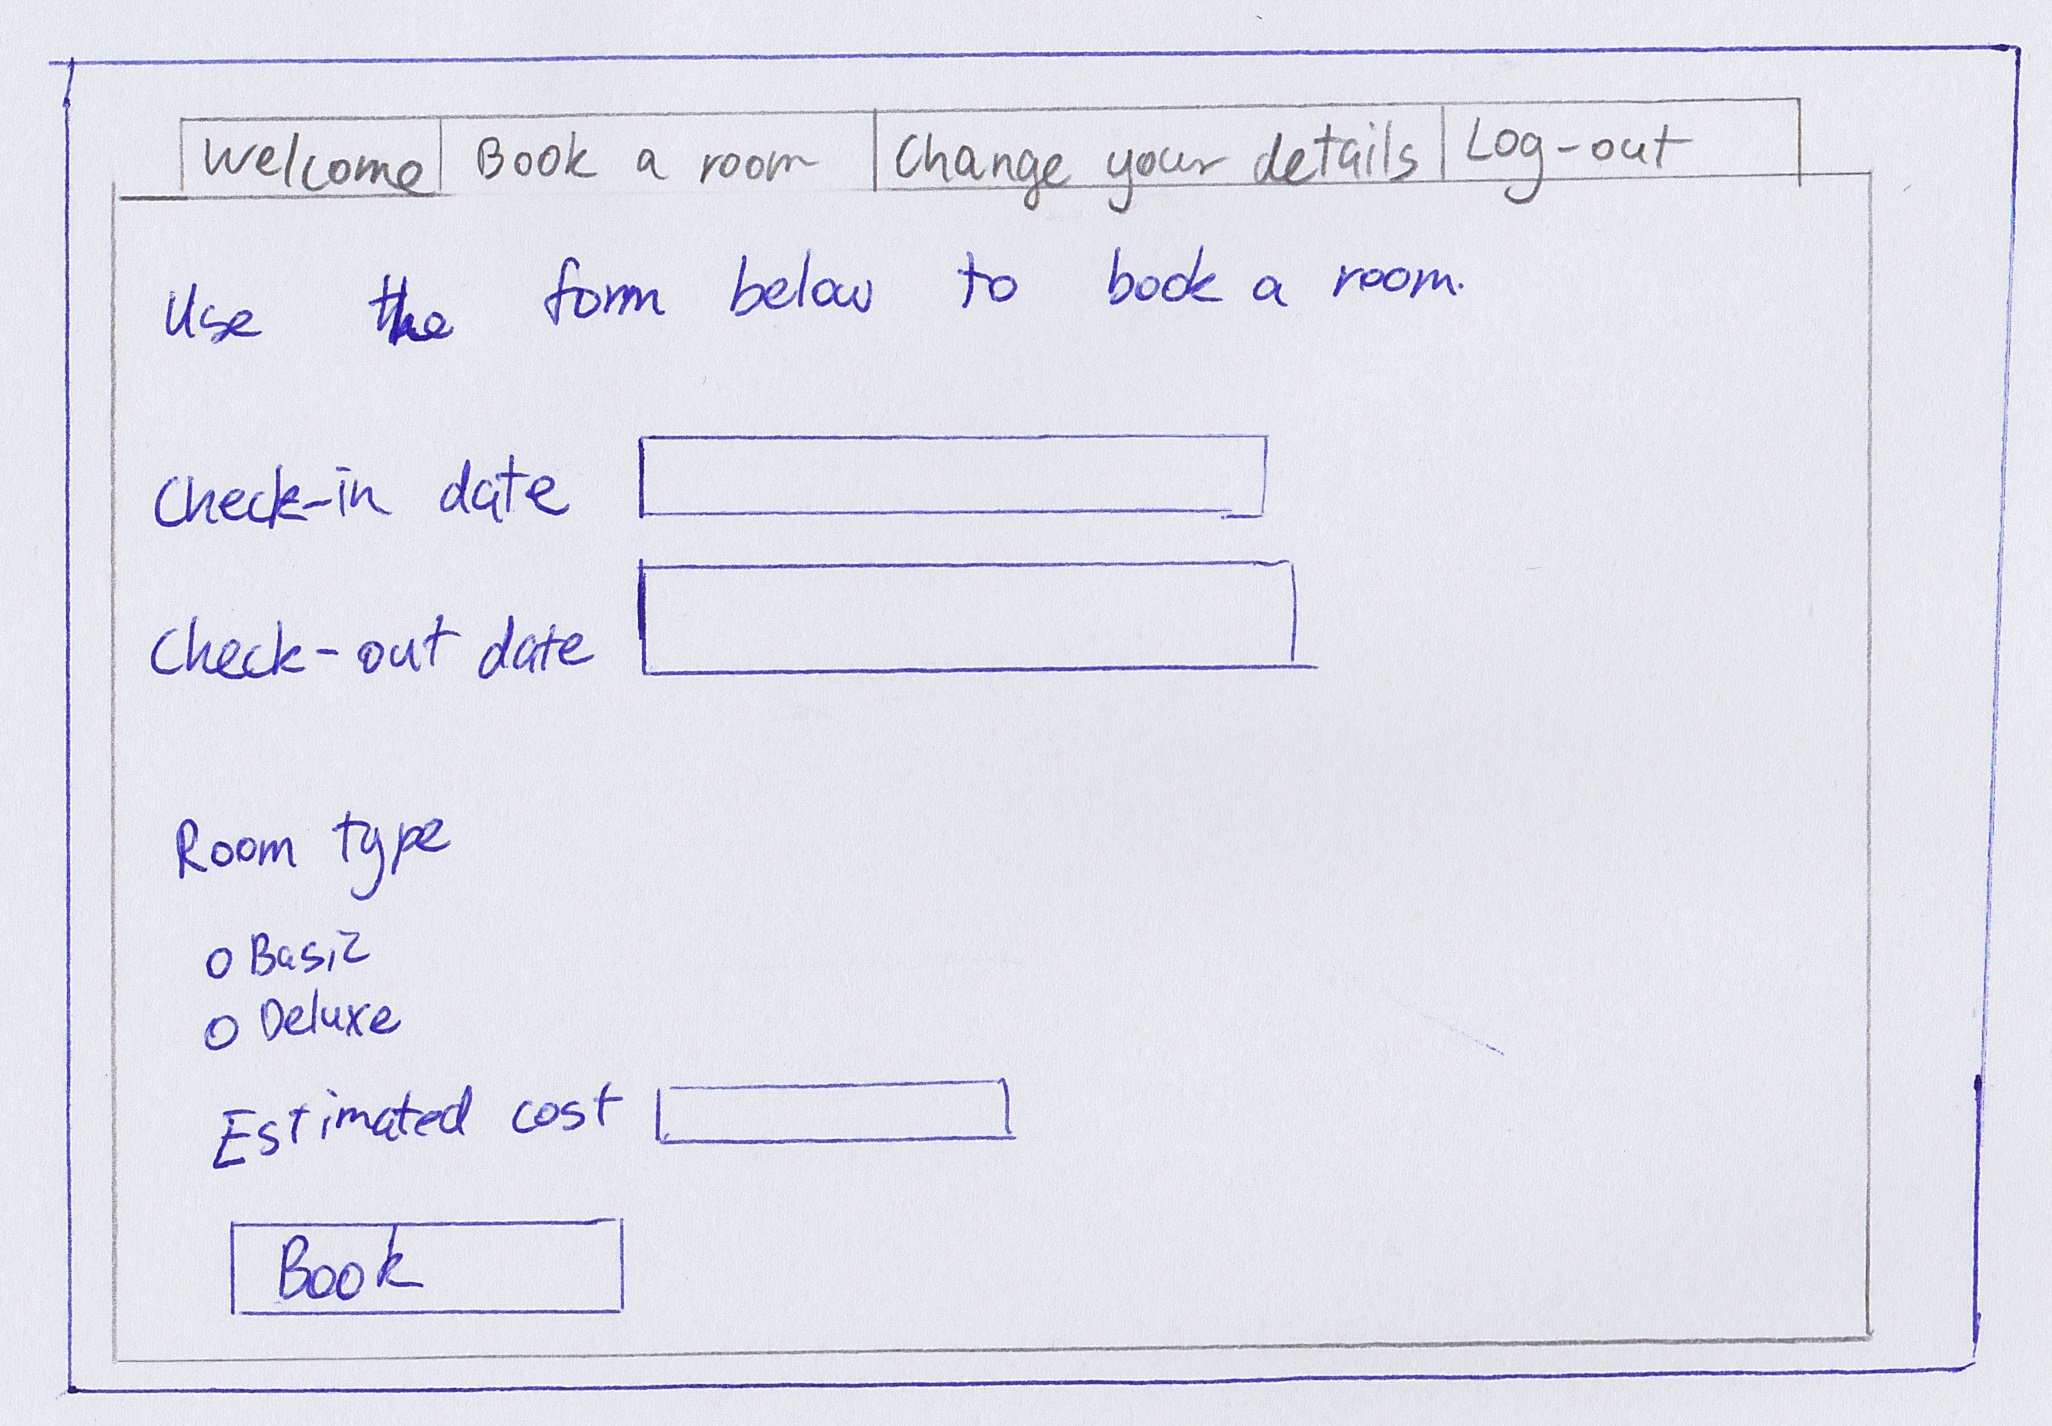 Welcome Book a room Change your details Log-out
Use the form below to book a room.
Check-in date
Check-out date
Room type
Basic
Deluxe
Estimated cost
Book